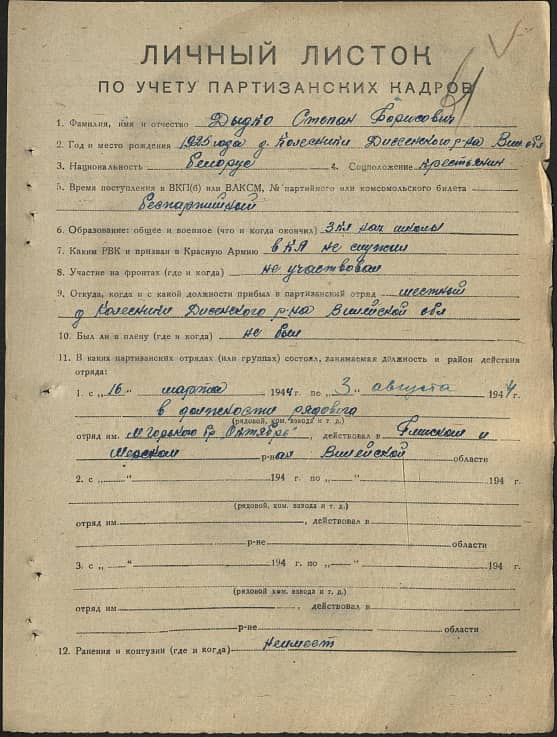 ЛИЧНЫЙ ЛИСТОК
ПО УЧЕТУ ПАРТИЗАНСКИХ КАДРОВ
1. Фамилия, имя и отчество Дыдко Степан Борисович
2. Год и место рождения 1925 года д. Колесники Дисенского р-на Вил обл
3. Национальность белорус 4. Соцположение крестьянин
5. Время поступления в ВКП(б) или ВЛКСМ, № партийного или комсомольского билета
беспартийный
6. Образование: общее и военное (что и когда окончил) 3 кл нач школы
7. Каким РВК и призван в Красную Армию в КА не служил
8. Участие на фронтах (где и когда) не участвовал
9. Откуда, когда и с какой должности прибыл в партизанский отряд местный
д Колесники Дисенского р-на Вилейской обл
10. Был ли в плену (где и когда) не был
11. В каких партизанских отрядах (или группах) состоял, занимаемая должность и район действия
отряда:
1. с „16“ марта 1944 г. по „3“ августа 1944 г.
в должности рядового
(рядовой, ком. взвода и т. д.)
отряд им. М Горького бр „Октябрь“, действовал в Глиском и
Мерском р-нах Вилейской области
2. с „ “ 194 г. по „ “ 194 г.
(рядовой, ком. взвода и т. д.)
отряд им. , действовал в
р-не области
3. с „ “ 194 г. по „ “ 194 г.
(рядовой ком. взвода и т. д.)
отряд им. , действовал в
р-не области
12. Ранения и контузии (где и когда) неимеет